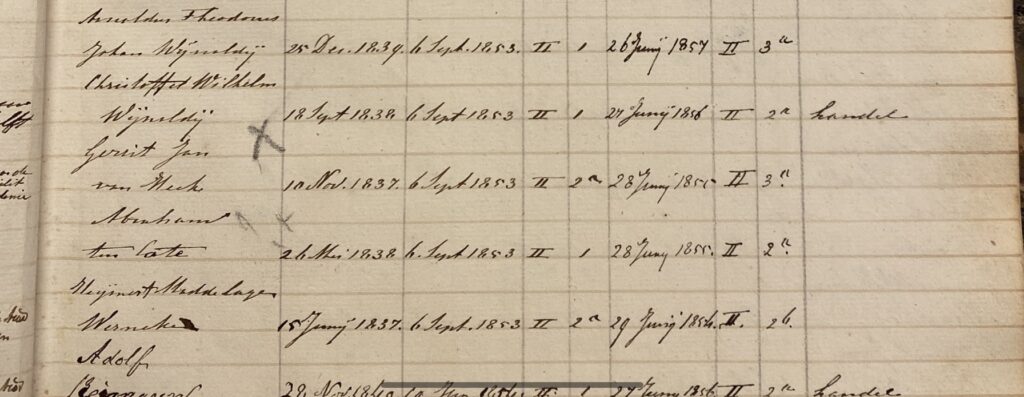 Arnoldus Theodorus
Johan Wijnoldij 25 Dec. 1839. 6 Sept. 1853. II 1 26 Junij 1857 II 3a
Christoffel Wilhelm
Wijnoldij 18 Sept 1838 6 Sept 1853 II 1 27 Junij 1856 II 2a handel
Gerrit Jan
van Heek 10 Nov. 1837. 6 Sept. 1853 II 2a 28 Junij 1855 II 3a.
Abraham
ten Cate 26 Mei 1838 6 Sept 1853 II 1 28 Junij 1855. II 2a.
Meijnert
Werneke 15 Junij 1837. 6 Sept. 1853 II 2a 29 Junij 1854. II. 2b.
Adolf
29 Nov. II 1 27 Junij 1856 II 2a handel